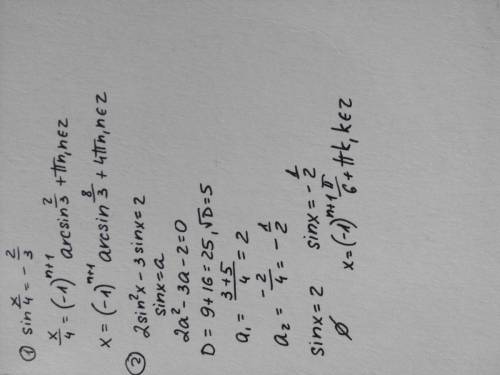 ① sin x/4 = - 2/3
x/4 = (-1)^n+1 arcsin 2/3 + πn, n∈z
x = (-1)^n+1 arcsin 8/3 + 4πn, n∈z
② 2sin²x - 3sinx = 2
sinx = a
2a² - 3a - 2 = 0
D = 9 + 16 = 25, √D = 5
a₁ = 3+5/4 = 2
a₂ = -2/4 = - 1/2
sinx = 2 sinx = - 1/2
∅ x = (-1)^n+1 π/6 + πk, k∈z